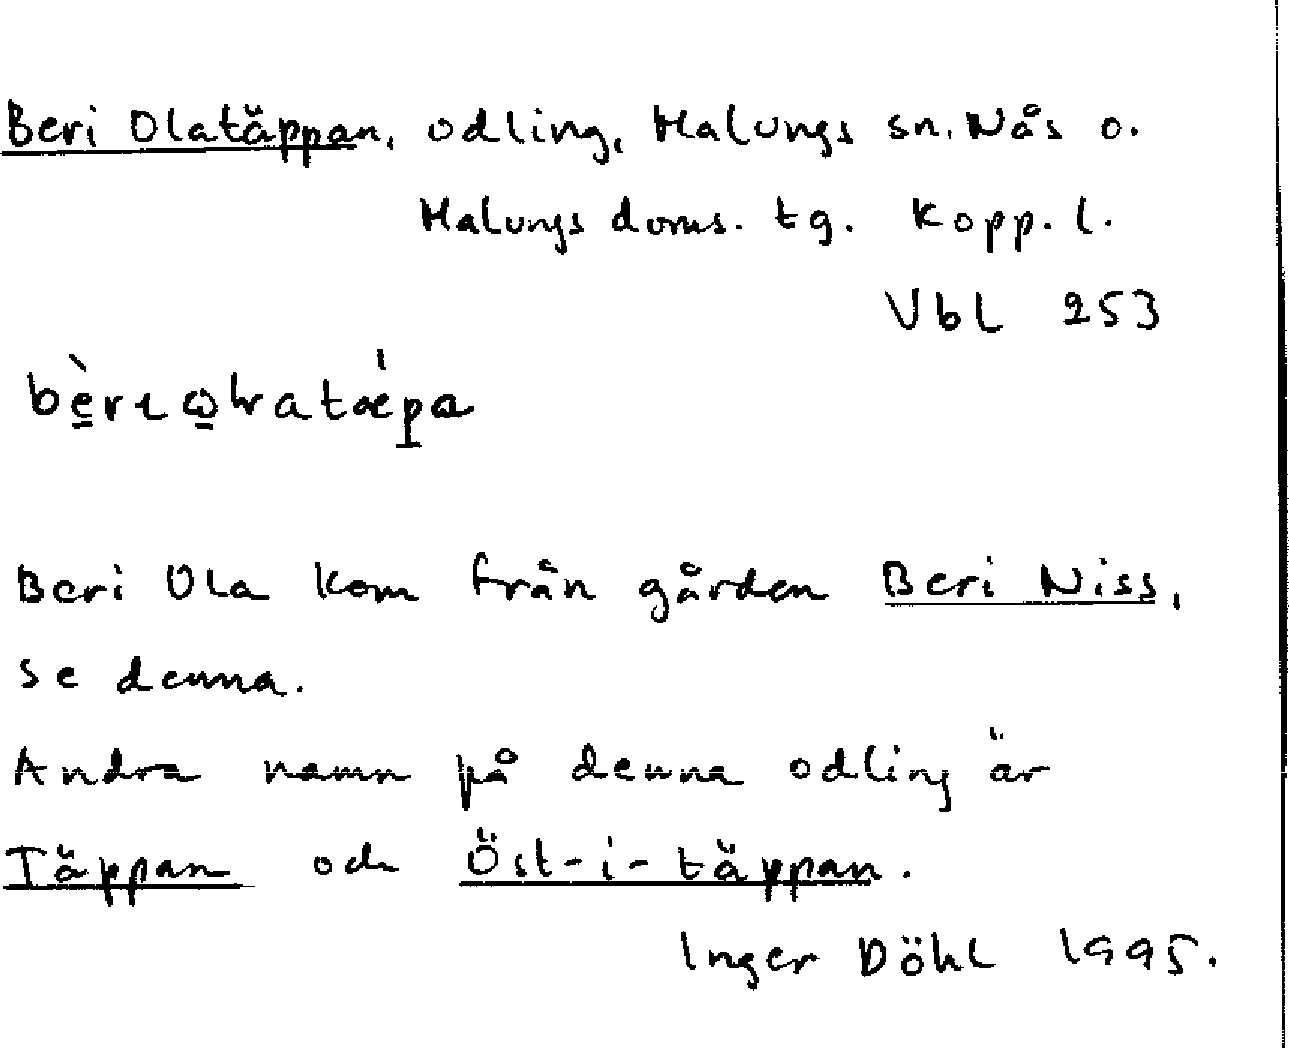 Beri Olatäppan, odling, Malungs sn. Nås o.
Malungs doms. tg. Kopp. l.
Vbl 253
Beri Ola kom från gården Beri Niss,
se denna.
Andra namn på denna odling är
Täppan och Öst-i-täppan.
Inger Döhl 1995.